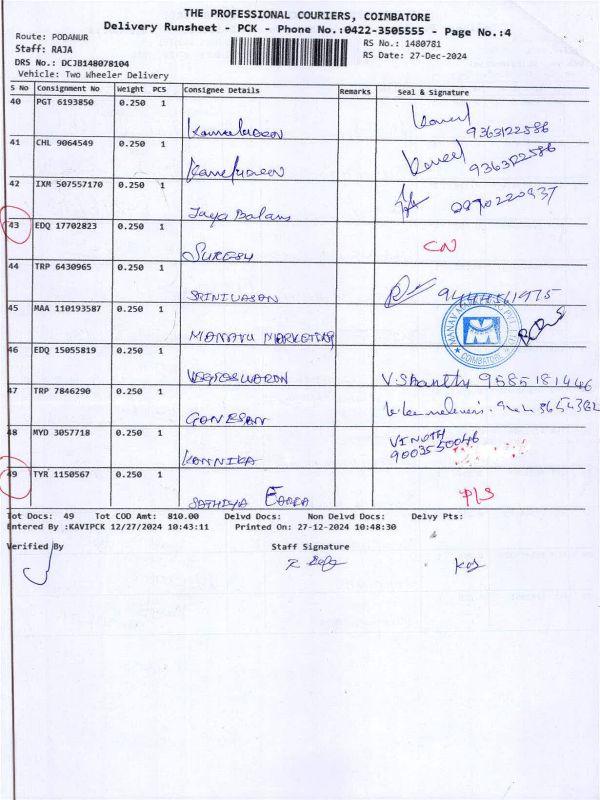 THE PROFESSIONAL COURIERS, COIMBATORE
Delivery Runsheet - PCK - Phone No.:0422-3505555 - Page No.:4
Route: PODANUR RS No.: 1480781
Staff: RAJA RS Date: 27-Dec-2024
DRS No.: DCJB148078104
Vehicle: Two Wheeler Delivery
S No Consignment No Weight PCS Consignee Details Remarks Seal & Signature
40 PGT 6193850 0.250 1
9363122586
41 CHL 9064549 0.250 1
9363122586
42 IXM 507557170 0.250 1
Jaya Balans
43 EDQ 17702823 0.250 1
SURESH CN
44 TRP 6430965 0.250 1
SRINIVASAN
45 MAA 110193587 0.250 1
MANAV MARKETING
COIMBATORE
46 EDQ 15055819 0.250 1
V.Shanthy 9585181446
47 TRP 7846290 0.250 1
GANESAN
48 MYD 3057718 0.250 1 VINOTH
KANNIKA 9003550046
49 TYR 1150567 0.250 1
SATHIYA P/S
Tot Docs: 49 Tot COD Amt: 810.00 Delvd Docs: Non Delvd Docs: Delvy Pts:
Entered By :KAVIPCK 12/27/2024 10:43:11 Printed On: 27-12-2024 10:48:30
Verified By Staff Signature